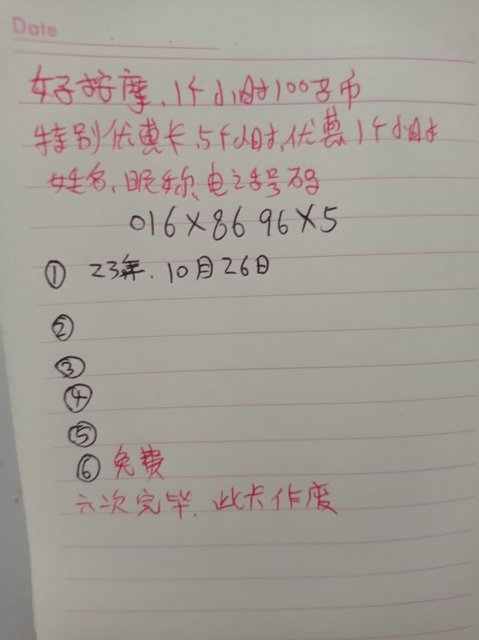 Date
好按摩,1个小时100马币
特别优惠卡,5个小时,优惠1个小时
姓名,昵称,电话号码
016X8696X5
① 23年.10月26日
②
③
④
⑤
⑥ 免费
六次完毕.此卡作废